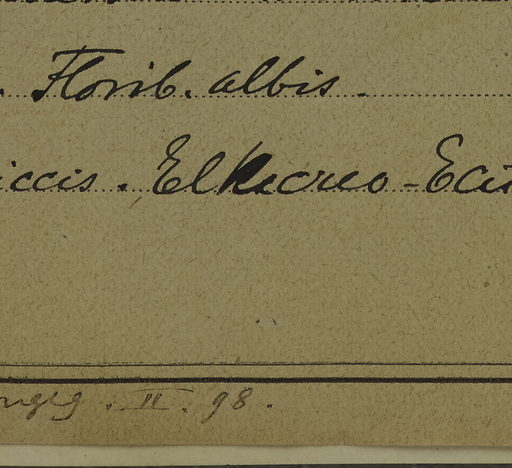 . Florib. albis.
iccis. El Recreo - Ecu
. II. 98.